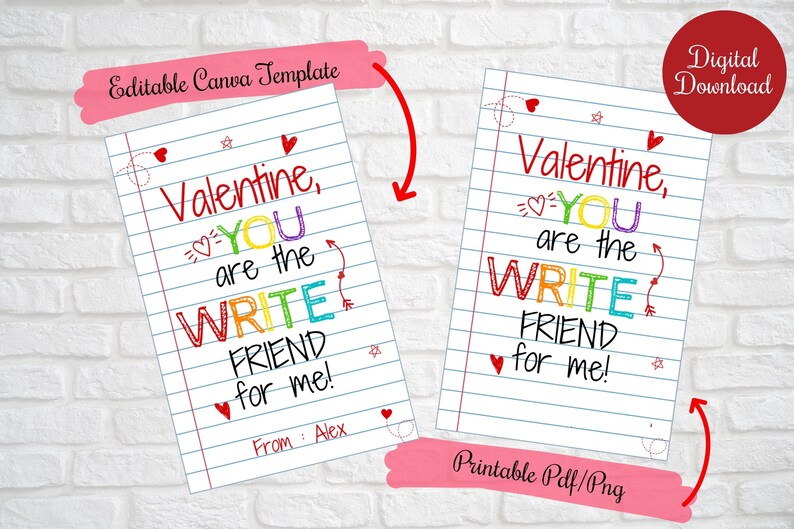 Editable Canva Template
Digital
Download
Valentine,
YOU
are the
WRITE
FRIEND
for me!
From : Alex
Valentine,
YOU
are the
WRITE
FRIEND
for me!
Printable Pdf/Png